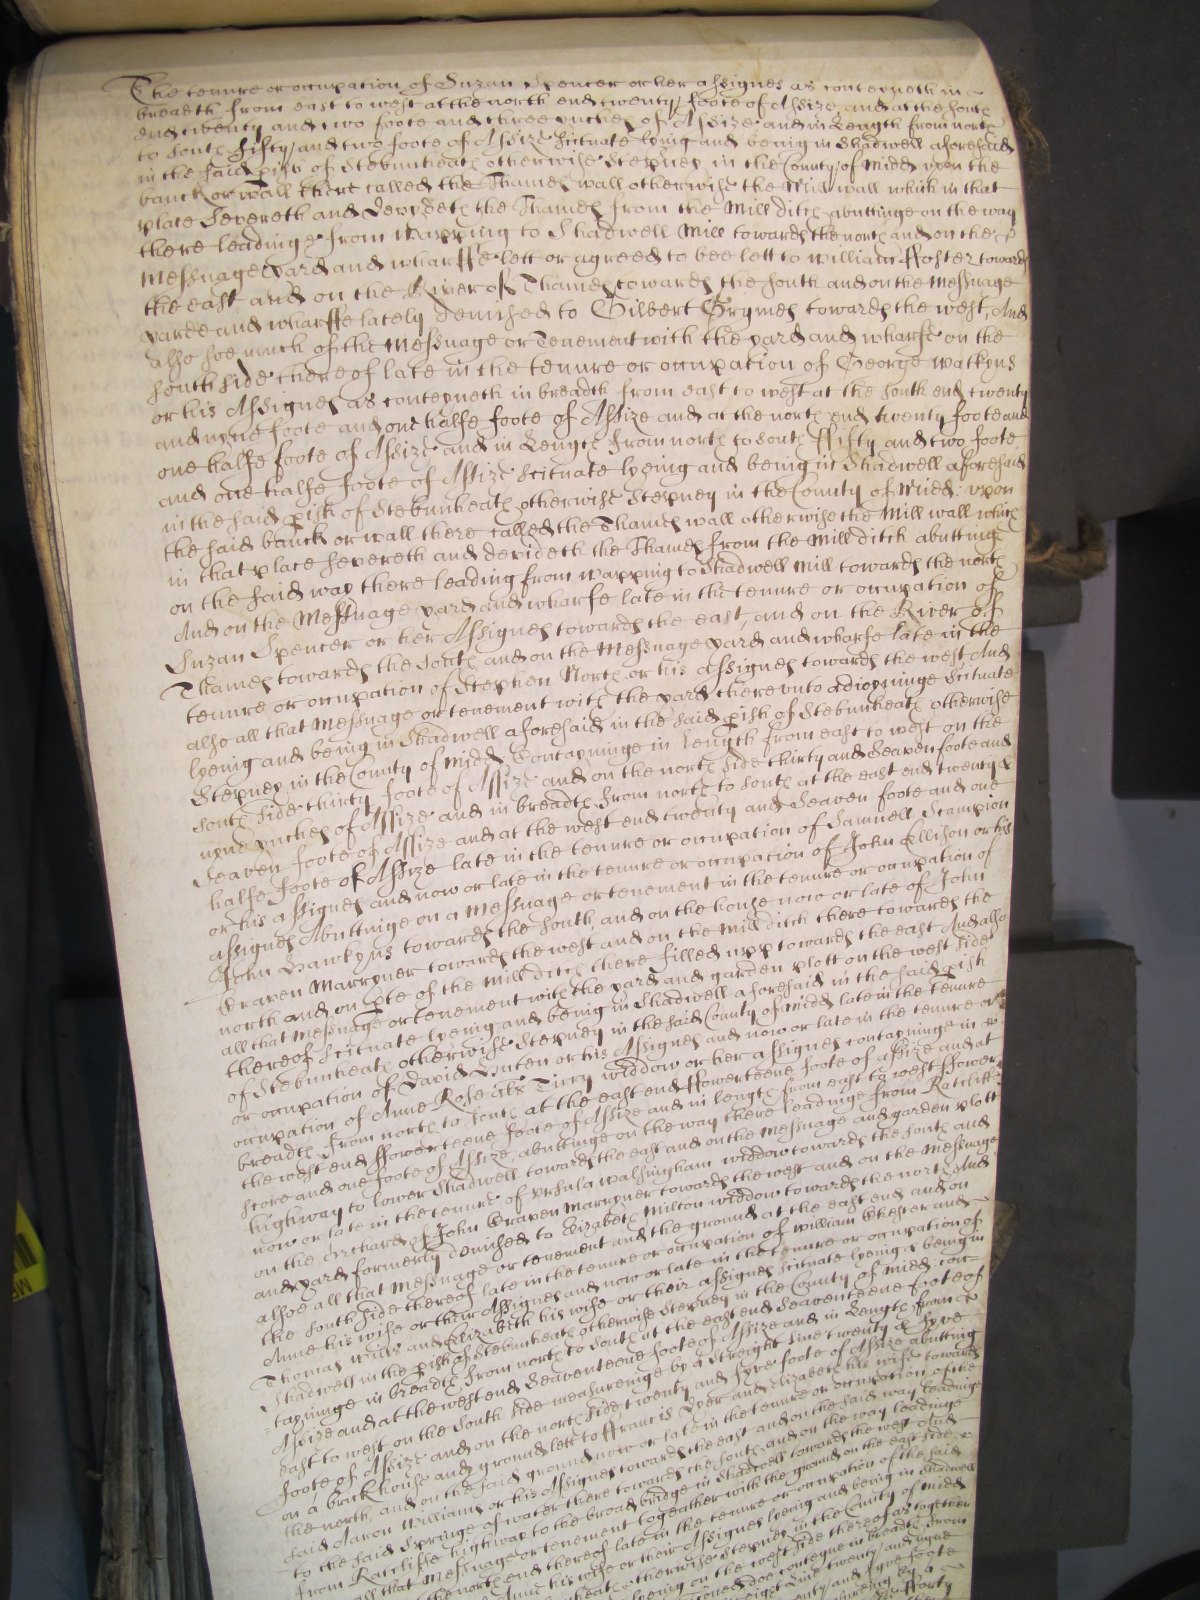 The tenure or occupation of Suzan Spencer or her assignes as conteyneth in
breadth from east to west at the north end twenty foote of Assize, and at the south
end twenty and two foote and three ynches of Assize and in Length from north
to south fifty and two foote of Assize Scituate lying and being in Shadwell aforesaid
in the said pish of Stebunheath otherwise Stepney in the County of Midd upon the
banck or wall there called the Thames wall otherwise the Mill wall which in that
place Severeth and devydeth the Thames from the Mill ditch abuttinge on the way
there leadinge from Wapping to Shadwell Mill towards the north and on the
Messuage yard and wharffe lett or agreed to bee lett to William ffoster towards
the east and on the River of Thames towards the south and on the Messuage
yarde and wharffe lately demised to Gilbert Grymes towards the west, And
also soe much of the Messuage or Tenement with the yard and wharfe on the
South side thereof late in the tenure or occupation of George Watkyns
or his Assignes as conteyneth in breadth from east to west at the south end twenty
and nyne foote and one halfe foote of Assize and at the north end twenty foote and
one halfe foote of Assize and in Length from north to south ffifty and two foote
and one halfe foote of Assize Scituate lyeing and being in Shadwell aforesaid
in the said pish of Stebunheath otherwise Stepney in the County of Midd: upon
the said banck or wall there called the Thames wall otherwise the Mill wall which
in that place severeth and devideth the Thames from the Mill ditch abuttinge
on the said way there leading from Wapping to Shadwell Mill towards the north
And on the Messuage yard and wharfe late in the tenure or occupation of
Suzan Spencer or her Assignes towards the east, and on the River of
Thames towards the South and on the Messuage yard and wharfe late in the
tenure or occupation of Stephen North or his Assignes towards the west And
also all that Messuage or tenement with the yard there unto adioyninge Scituate
lyeing and being in Shadwell aforesaid in the said pish of Stebunheath otherwise
Stepney in the County of Midd Contayninge in Length from east to west on the
South side thirty foote of Assize and on the north side thirty and Seaven foote and
nyne ynches of Assize and in breadth from north to south at the east end twenty &
Seaven foote of Assize and at the west end twenty and Seaven foote and one
halfe foote of Assize late in the tenure or occupation of Samuell Scampion
or his assignes and now or late in the tenure or occupation of John Ellison or his
assignes Abuttinge on a Messuage or tenement in the tenure or occupation of
John Hawkyns towards the South, and on the house now or late of John
Craven Marryner towards the west and on the Mill ditch there towards the
north and on pte of the Mill ditch there filled upp towards the east And also
all that Messuage or tenement with the yard and garden plott on the west side
thereof Scituate lyeing and being in Shadwell aforesaid in the said pish
of Stebunheath otherwise Stepney in the said County of Midd late in the tenure
or occupation of David Hunten or his Assignes and now or late in the tenure or
occupation of Anne Rose als Tirry widdow or her assignes contayninge in
breadth from north to south at the east end ffowerteene foote of assize and at
the west end ffowerteene foote of Assize and in length from east to west ffower
score and one foote of Assize, abuttinge on the way there leadinge from Ratcliffe
highway to lower Shadwell towards the east and on the Messuage and garden plott
now or late in the tenure of Ursula Walsingham widdow towards the south and
on the Orchard of John Craven Marryner towards the west and on the Messuage
and yard formerly demised to Elizabeth Milton widdow towards the north And
alsoe all that Messuage or tenement and the ground at the east end and on
the South side thereof late in the tenure or occupation of William Chester and
Anne his wife or their Assignes and now or late in the tenure or occupation of
Thomas Mills and Elizabeth his wife or their assignes Scituate lyeing & being in
Shadwell in the pish of Stebunheath otherwise Stepney in the County of Midd: con-
tayninge in breadth from north to south at the east end Seaventeene foote of
Assize and at the west end Seaventeene foote of Assize and in Length from
east to west on the South side measureinge by a streight Line twenty & fyve
foote of Assize and on the north side twenty and fyve foote of Assize abutting
on a brick house and ground lett to ffrancis Dyer and Elizabeth his wife towards
the north, and on the said ground now or late in the tenure or occupation of the
said Aaron Williams or his Assignes towards the east and on the said way leadinge
to the said Springe of water there towards the south and on the way leadinge
from Ratcliffe highway to the broad bridge in Shadwell towards the west And
all that Messuage or tenement togeather with the ground on the east side &
the north end thereof late in the tenure or occupation of the said
Anne his wife or their Assignes lyeing and being in Shadwell
otherwise Stepney in the County of Midd
lyeing on the west side thereof as together
doe conteyne in breadth from
Line twenty and nyne
twenty and fyve foote
measureing by a
fforty